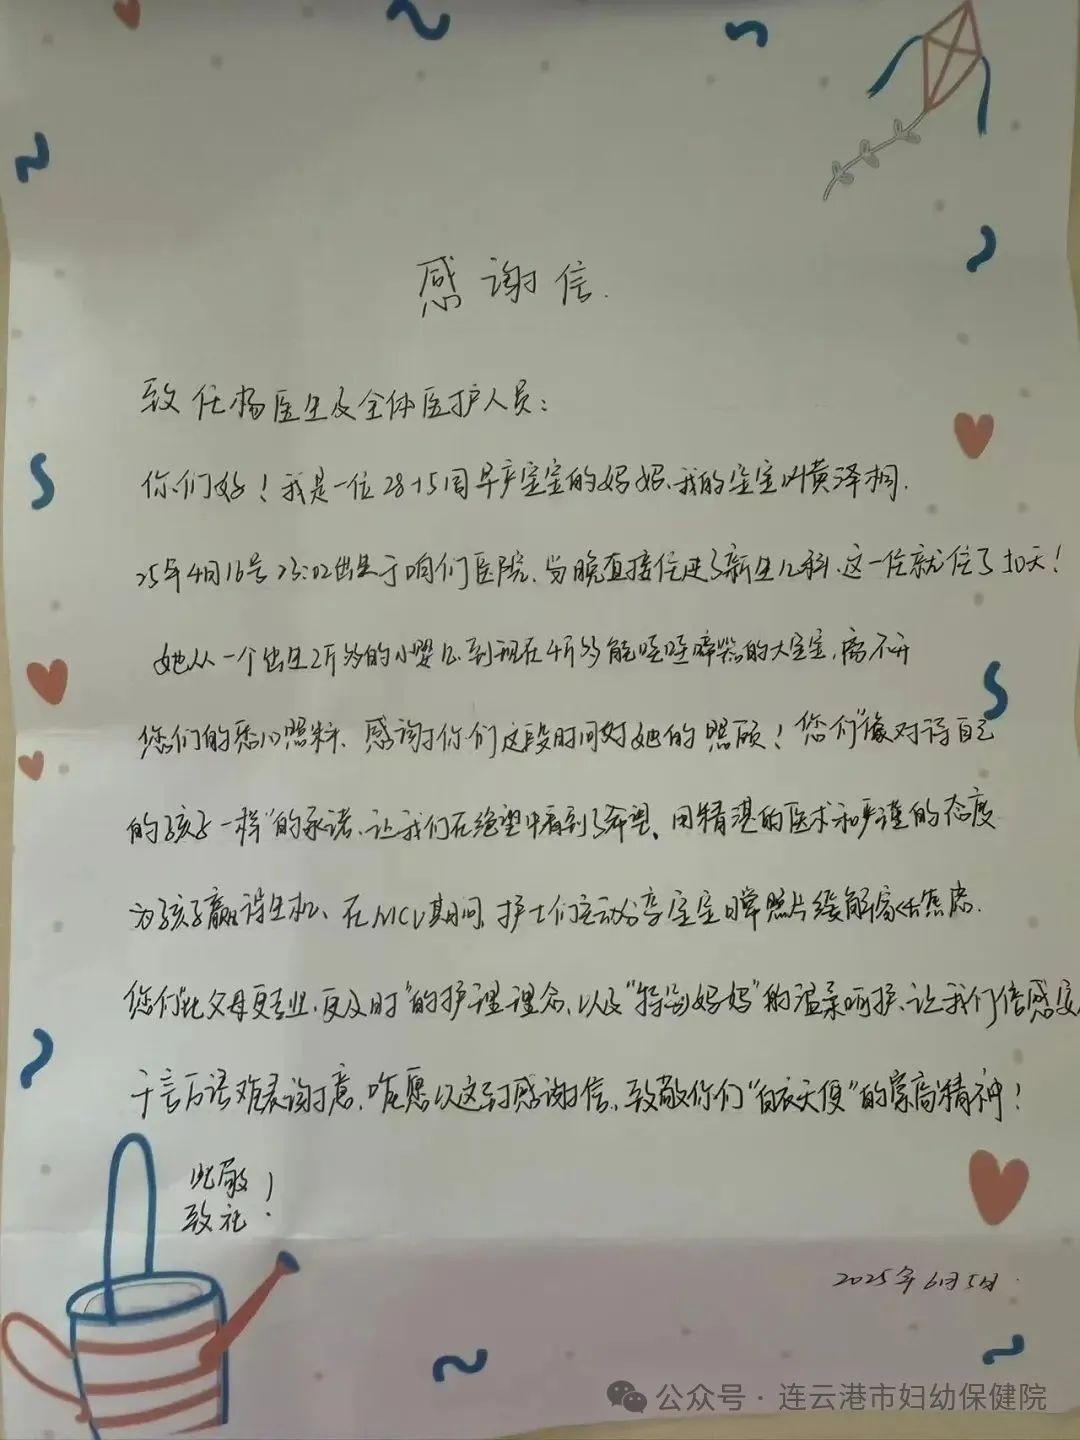 感谢信.
致任杨医生及全体医护人员：
你们好！我是一位28+5周早产宝宝的妈妈、我的宝宝叫黄泽桐.
25年4月16号23:02出生于咱们医院、当晚直接住进了新生儿科、这一住就住了50天！
她从一个出生2斤多的小婴儿到现在4斤多能哇哇啼哭的大宝宝，离不开
您们的悉心照料、感谢你们这段时间对她的照顾！您们“像对待自己
的孩子一样”的承诺、让我们在绝望中看到了希望、用精湛的医术和严谨的态度
为孩子赢得生机、在NICU期间，护士们主动分享宝宝日常照片缓解家长焦虑.
您们“比父母更专业、更及时”的护理理念、以及“特别妈妈”的温柔呵护、让我们倍感安
千言万语难表谢意，唯愿以这封感谢信、致敬你们“白衣天使”的崇高精神！
此敬
致礼！
2025年6月5日.
公众号·连云港市妇幼保健院